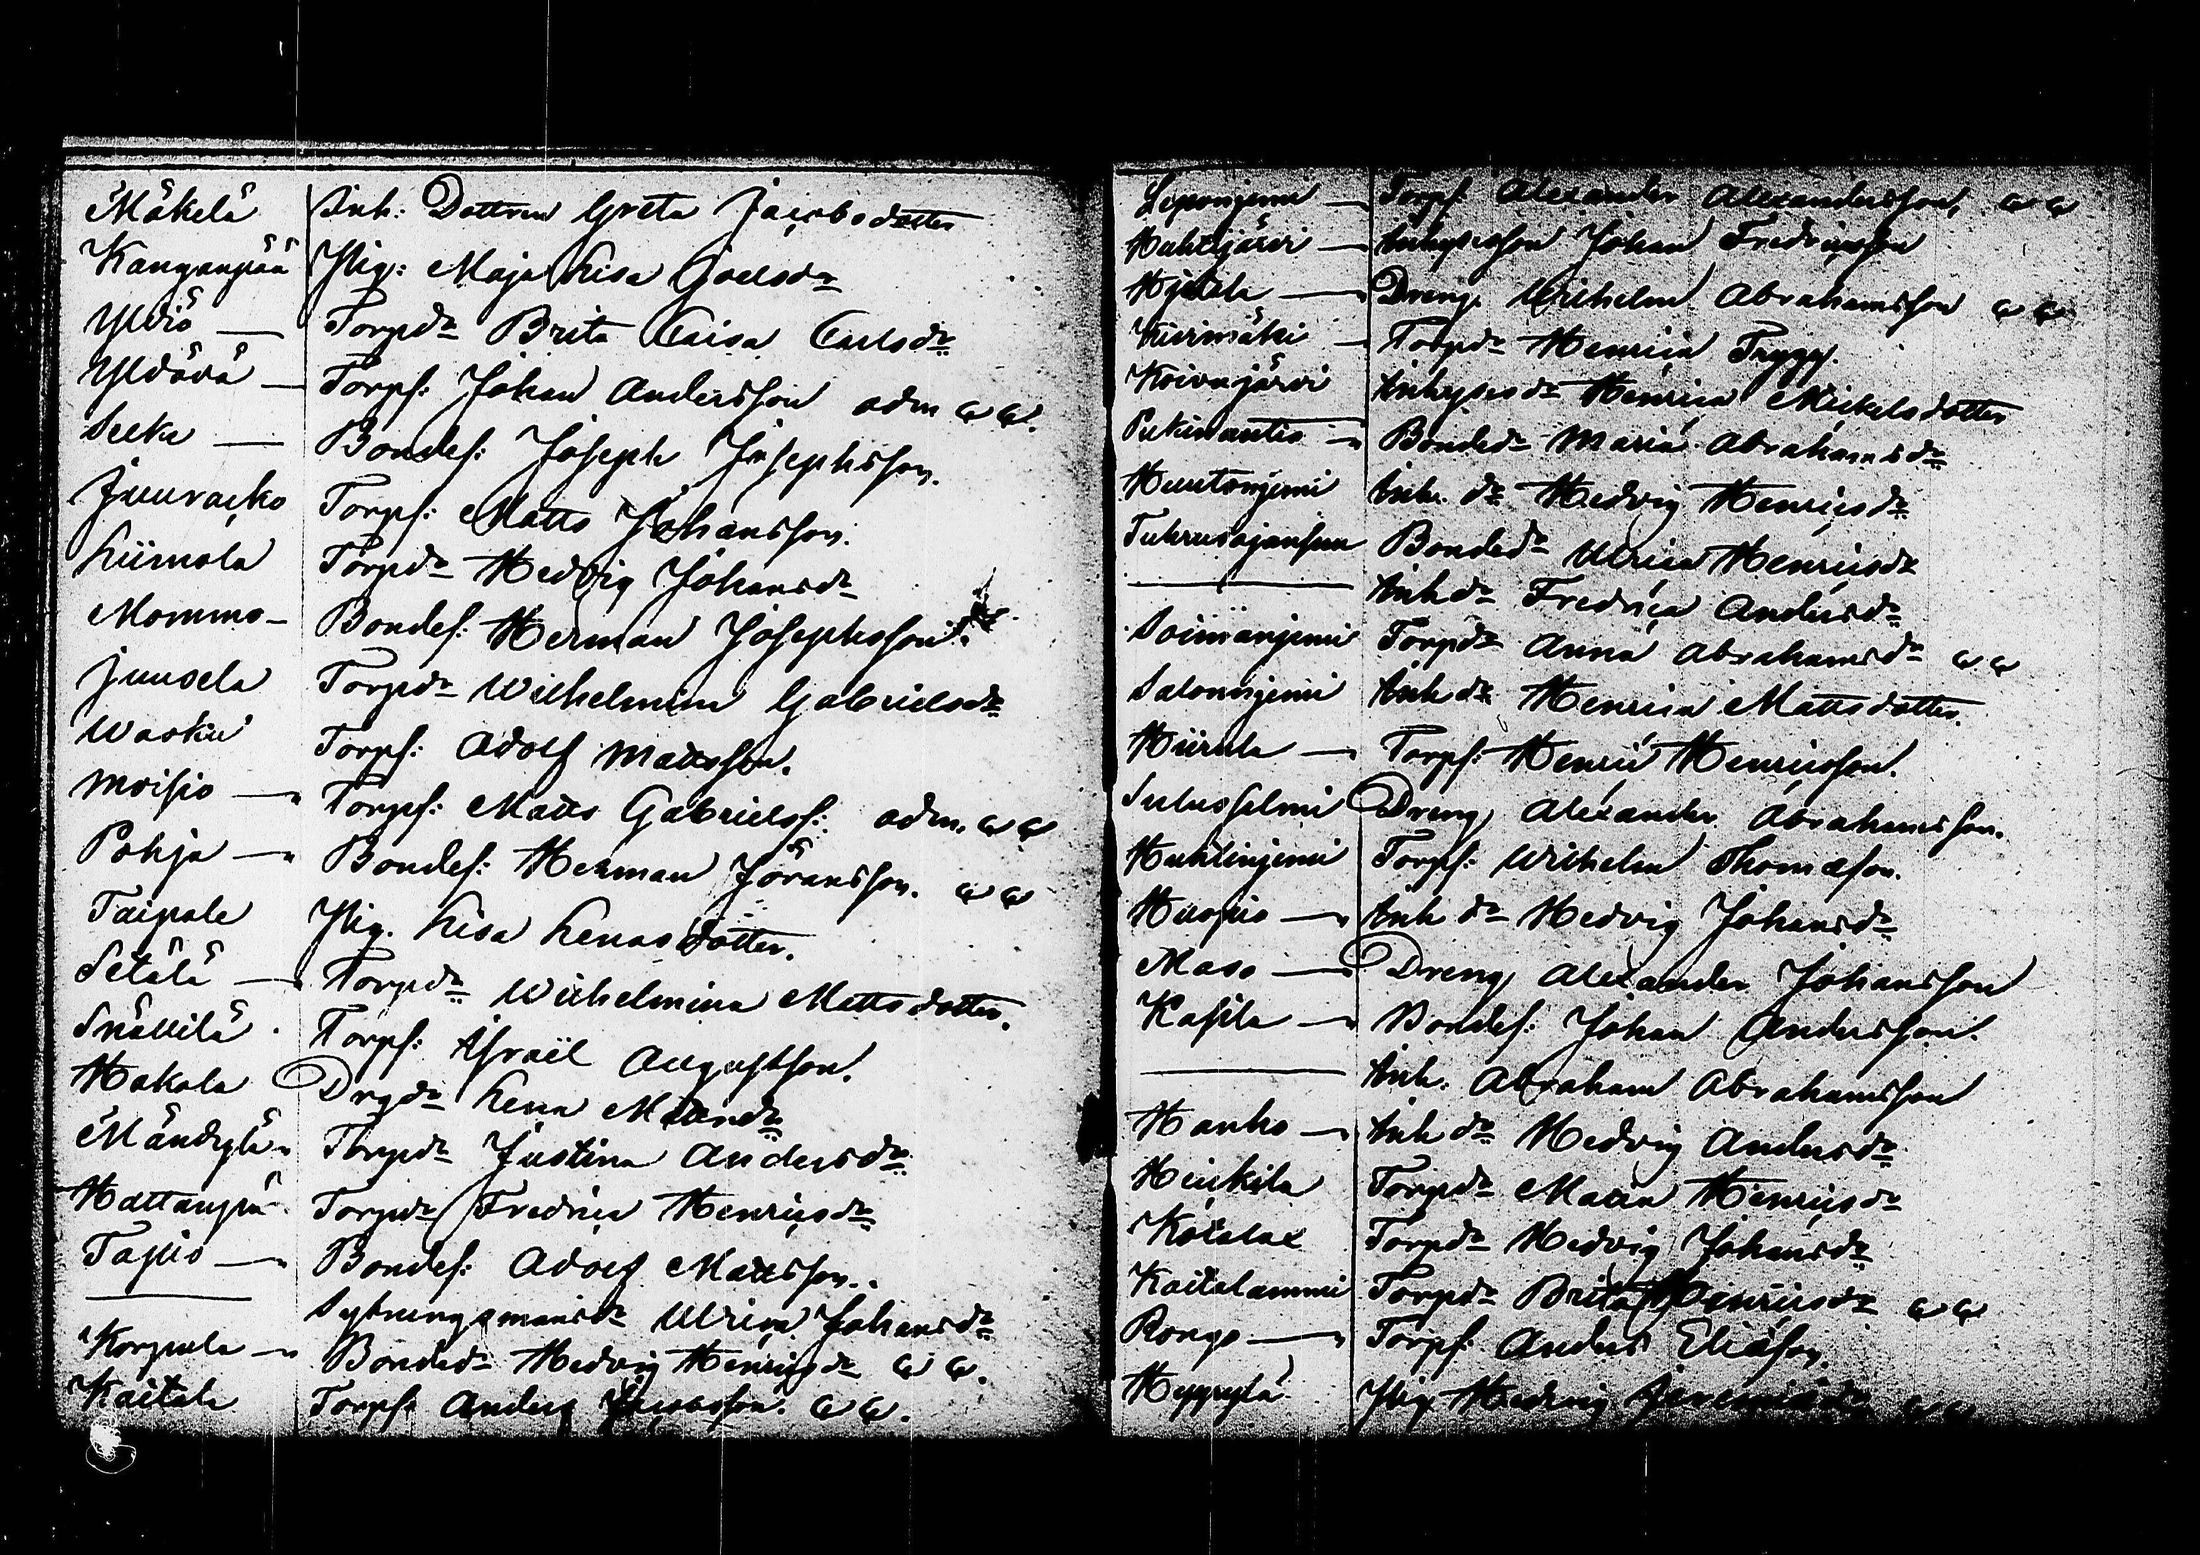 Mäkelä Inh: Dottren Greta Jacobsdotter
Kanganpää Pig: Maja Lisa Joelsdr
Torpdr Brita Caisa Carlsdr
Torpf: Johan Andersson adm
Seeke — Bondes: Joseph Josephsson.
Torps: Matts Johansson.
Liimola Torpdr Hedvig Johansdr
Mommo — Bondes: Herman Josephsson.
Juusela Torpdr Wilhelmina Gabrielsdr
Torps: Adolf Mattsson.
Moisio — Torps: Matts Gabrielss: adm.
Pohja — Bondes: Herman Göransson.
Taipale Pig. Lisa Lenasdotter.
Setälä — Torpdr Wilhelmina Mattsdotter.
Torps: Israël Augustson.
Hakala Drgdr Lena
Mändylä Torpdr Justina Andersdr
Torpdr Fredrica Henricsdr
Tapio — Bondes: Adolf Mattsson.
— Sytningsmansdr Ulrica Johansdr
Korpula — Bondedr Hedvig Henricsdr
Kaitala Torps: Anders Jacobsson.
Leponjemi — Torps: Alexander Alexandersson,
Huhtijärvi — Inhysesson Johan Fredricsson
Dreng. Wilhelm Abrahamsson
Kiirimäki — Torpdr Henrica Trygg.
Koivujärvi Inhysesdr Henrica Mickelsdotter
Bondedr Maria Abrahamsdr
Inh. dr Hedvig Henricsdr
Bondedr Ulrica Henricsdr
— Inh dr Fredrica Andersdr
Torpdr Anna Abrahamsdr
Salonnjemi Inh dr Henrica Mattsdotter.
Hiirola — Torps: Henric Henricsson.
Dreng Alexander Abrahamsson.
Torps: Wilhelm Thomason.
Haapio — Inh dr Hedvig Johansdr
Maso — Dreng Alexander Johansson
Kasila — Bondes: Johan Andersson.
— Inh. Abraham Abrahamsson
Hanho — Inh dr Hedvig Andersdr
Heikila Torpdr Maria Henricsdr
Torpdr Hedvig Johansdr
Kaitalammi Torpdr Brita Henricsdr
Rongo — Torps: Anders Eliason.
Hyyrylä Pig Hedvig